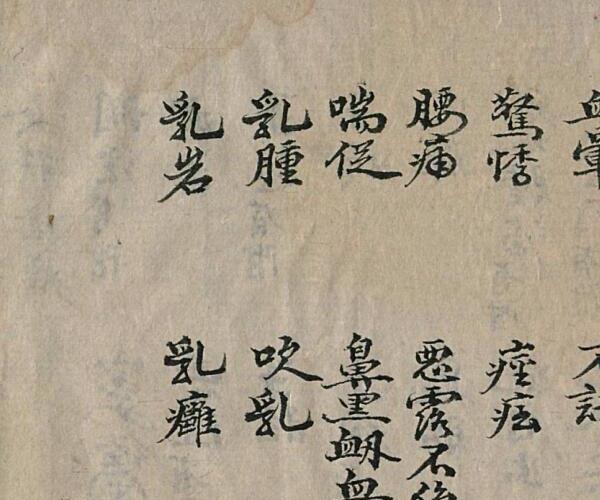 血暈
驚悸
腰痛
喘促
乳腫
乳岩
不
痙
惡露不
鼻黑衄血
吹乳
乳癰